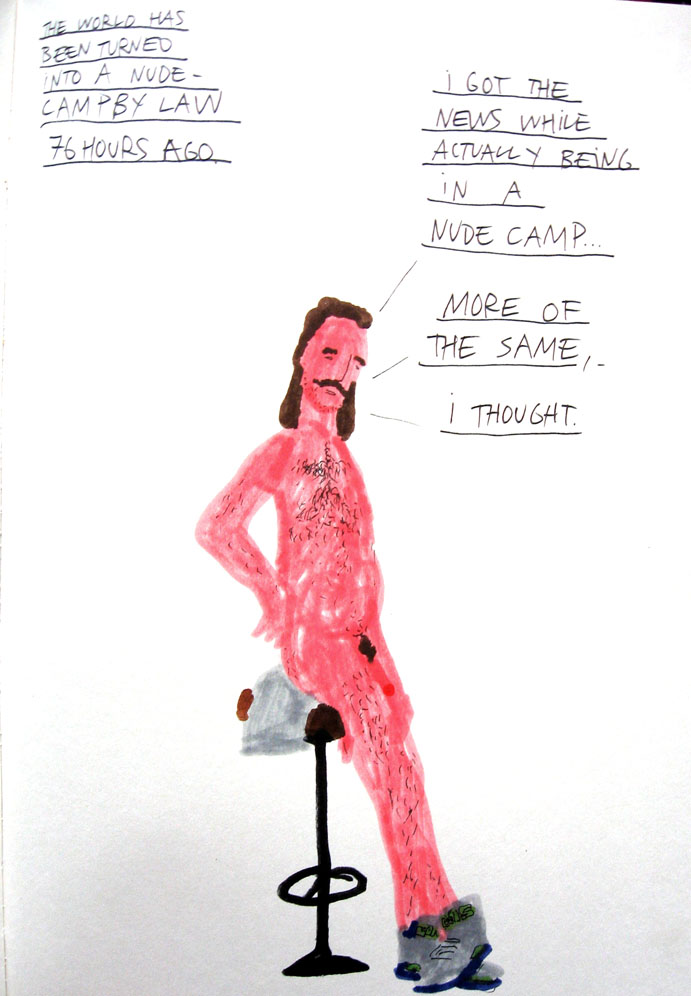 THE WORLD HAS
BEEN TURNED
INTO A NUDE-
CAMPBY LAW
76 HOURS AGO.
i GOT THE
NEWS WHiLE
ACTUALLY BEiNG
iN A
NUDE CAMP...
MORE OF
THE SAME,-
i THOUGHT.